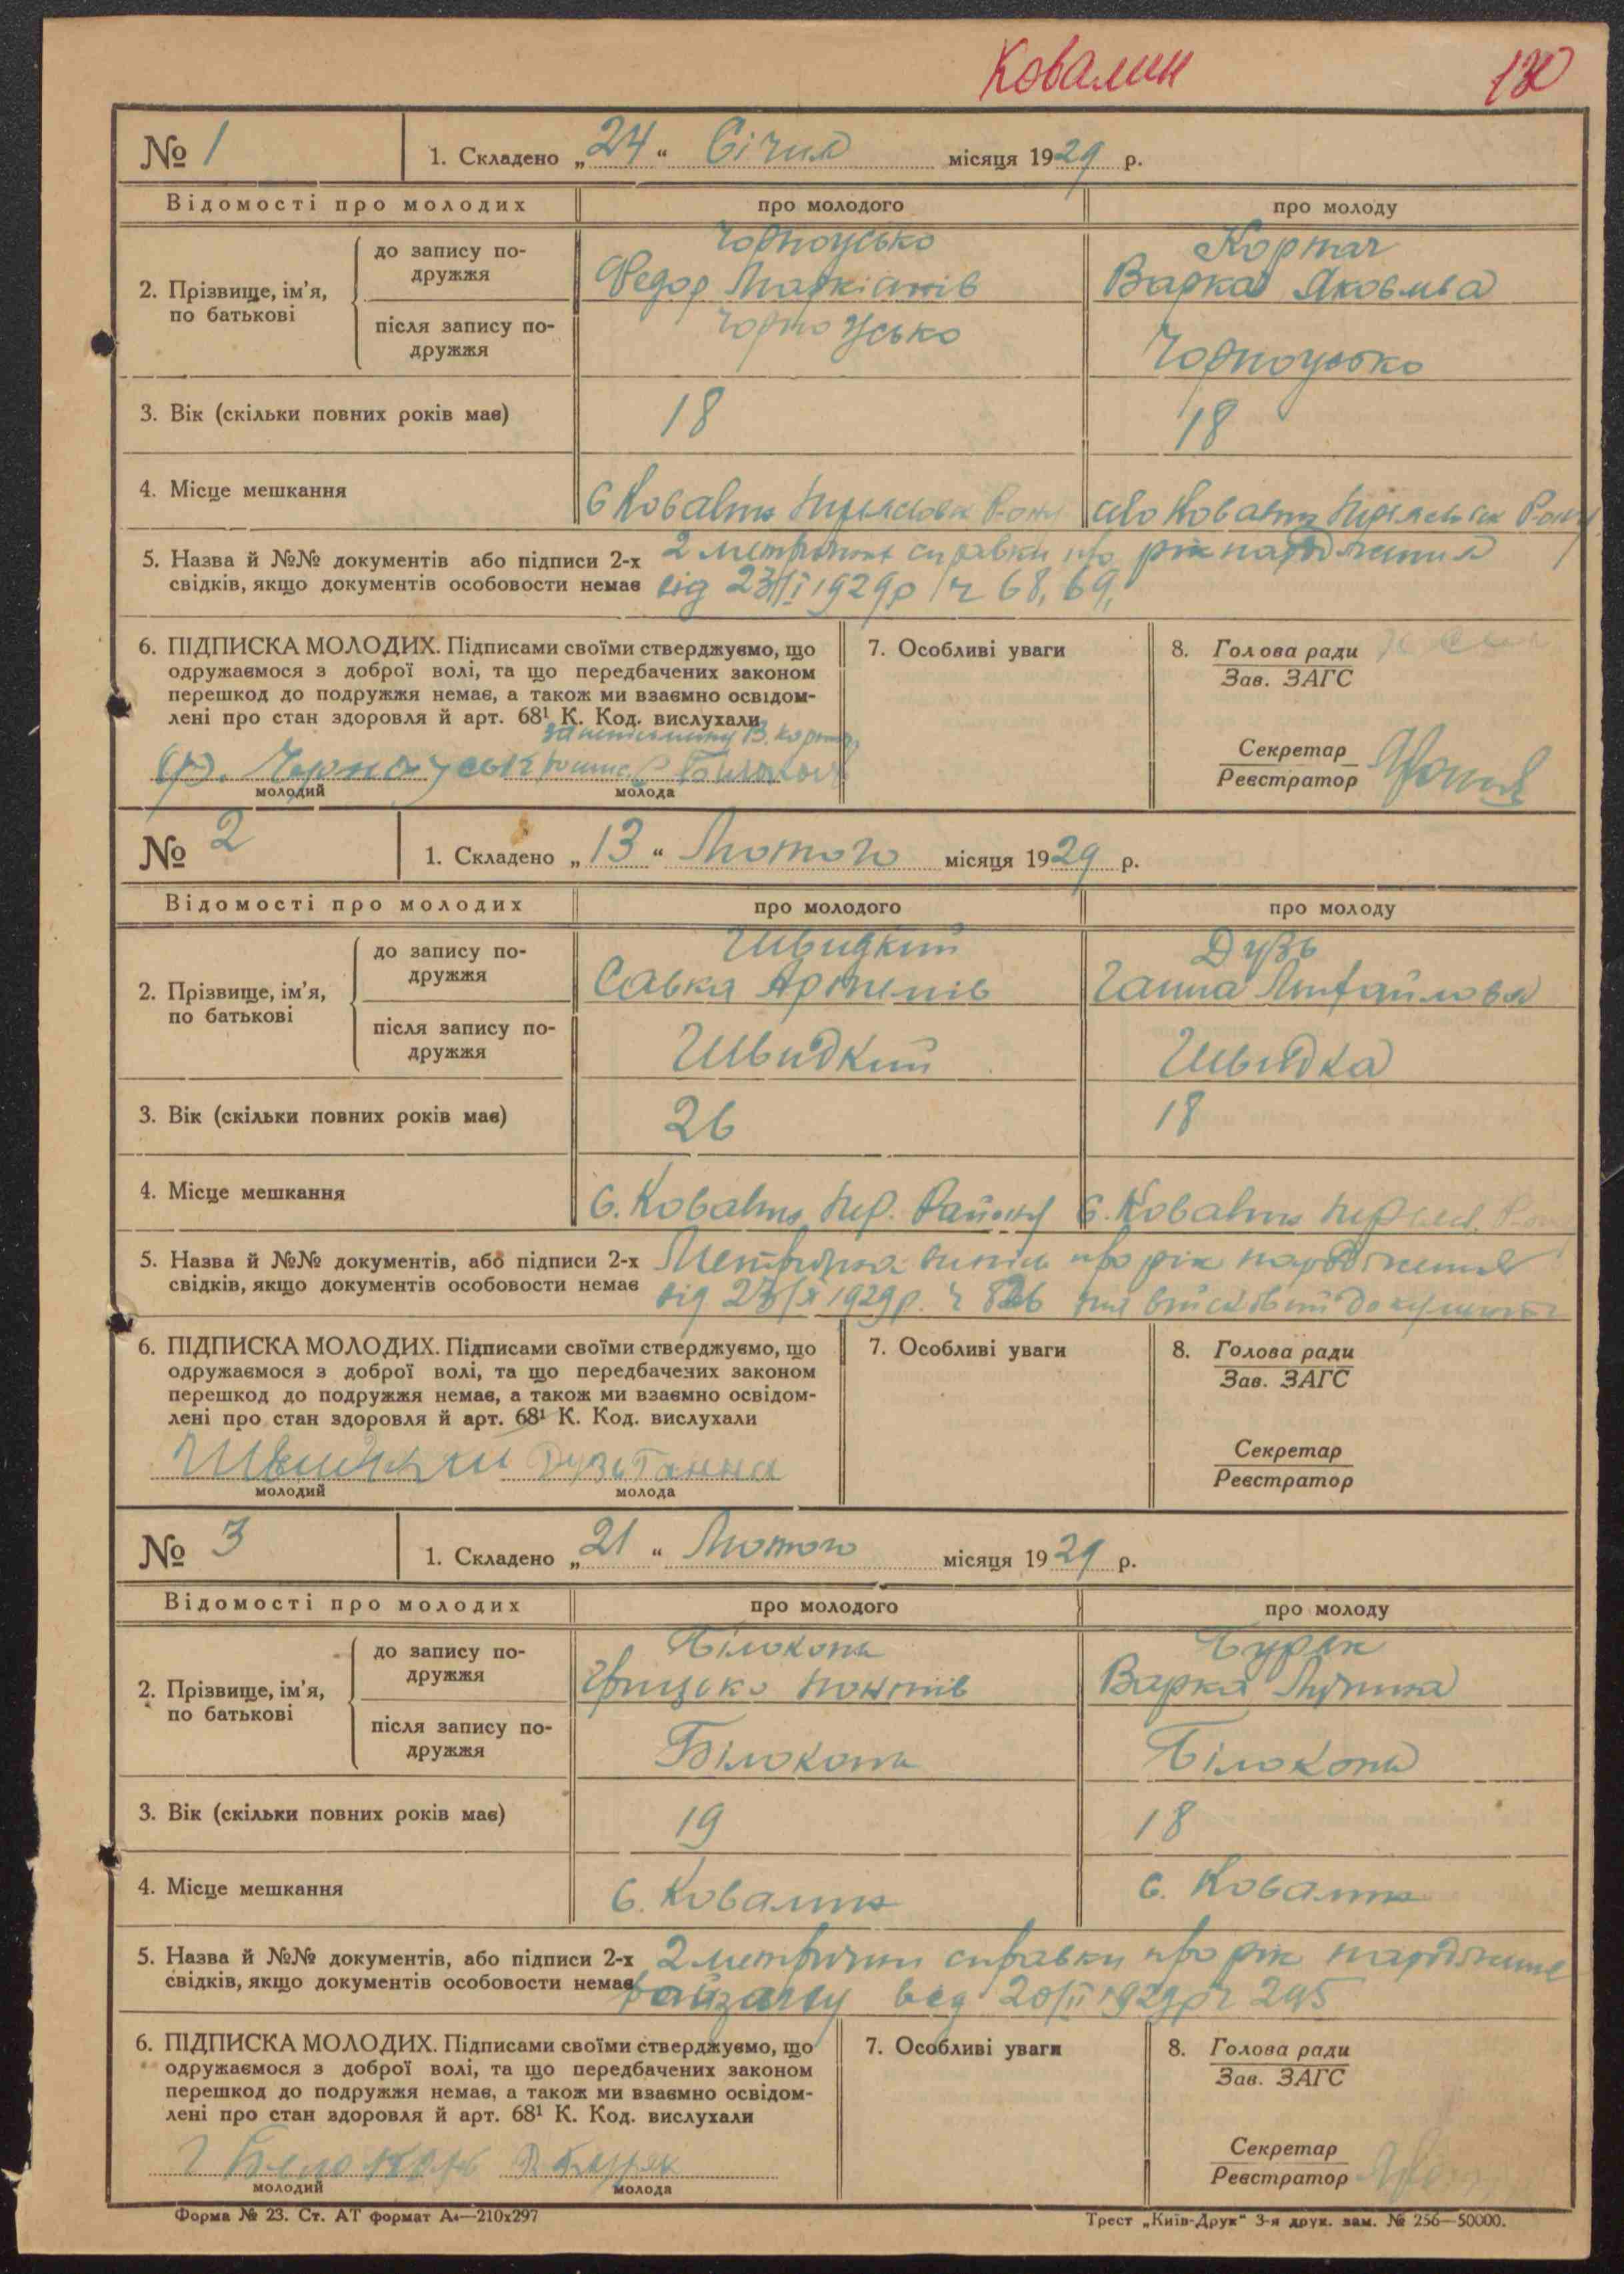 Ковалин
130
№ 1
1. Складено „24“ Січня місяця 1929 р.
Відомості про молодих
про молодого
про молоду
2. Прізвище, ім’я, по батькові
до запису подружжя
Чорноусько
Федор Маркіянів
Кортач
Варка Яковлва
після запису подружжя
Чорноусько
Чорноусько
3. Вік (скільки повних років має)
18
18
4. Місце мешкання
С Ковалин
село Ковалин
5. Назва й №№ документів або підписи 2-х
2 метричних справки про рік народження
свідків, якщо документів особовости немає
від 23/I 1929р ч 68, 69,
6. ПІДПИСКА МОЛОДИХ. Підписами своїми стверджуємо, що
одружаємося з доброї волі, та що передбачених законом
перешкод до подружжя немає, а також ми взаємно освідом-
лені про стан здоровля й арт. 68¹ К. Код. вислухали
Ф. Чорноуськ
молодий
молода
7. Особливі уваги
8. Голова ради
Зав. ЗАГС
Секретар
Реєстратор
№ 2
1. Складено „13“ Лютого місяця 1929 р.
Відомості про молодих
про молодого
про молоду
2. Прізвище, ім’я, по батькові
до запису подружжя
Швидкий
Савка Артемів
Дузь
Ганна Михайловна
після запису подружжя
Швидкий
Швидка
3. Вік (скільки повних років має)
26
18
4. Місце мешкання
С. Ковалин Пер. Району
С. Ковалин
5. Назва й №№ документів, або підписи 2-х
Метрична випись про рік народження
свідків, якщо документів особовости немає
від 1929р. ч
6. ПІДПИСКА МОЛОДИХ. Підписами своїми стверджуємо, що
одружаємося з доброї волі, та що передбачених законом
перешкод до подружжя немає, а також ми взаємно освідом-
лені про стан здоровля й арт. 68¹ К. Код. вислухали
Дузь Ганна
молодий
молода
7. Особливі уваги
8. Голова ради
Зав. ЗАГС
Секретар
Реєстратор
№ 3
1. Складено „21“ Лютого місяця 1929 р.
Відомості про молодих
про молодого
про молоду
2. Прізвище, ім’я, по батькові
до запису подружжя
Білоконь
Грицько
Буряк
Варка
після запису подружжя
Білоконь
Білоконь
3. Вік (скільки повних років має)
19
18
4. Місце мешкання
С. Ковалин
С. Ковалин
5. Назва й №№ документів, або підписи 2-х
2 метрични справки про рік народження
свідків, якщо документів особовости немає
райзагсу від 20/II 1929р ч 295
6. ПІДПИСКА МОЛОДИХ. Підписами своїми стверджуємо, що
одружаємося з доброї волі, та що передбачених законом
перешкод до подружжя немає, а також ми взаємно освідом-
лені про стан здоровля й арт. 68¹ К. Код. вислухали
Г Белоконь В Буряк
молодий
молода
7. Особливі уваги
8. Голова ради
Зав. ЗАГС
Секретар
Реєстратор
Форма № 23. Ст. АТ формат А₄—210х297
Трест „Київ-Друк“ 3-я друк. зам. № 256—50000.